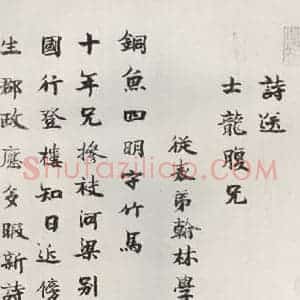 詩送
士龍兄
從表弟翰林學
銅魚四明守竹馬
十年兄摻袪河梁别
國行登樓知日近傍
生郡政應多暇新詩
Shufaziliao.COM